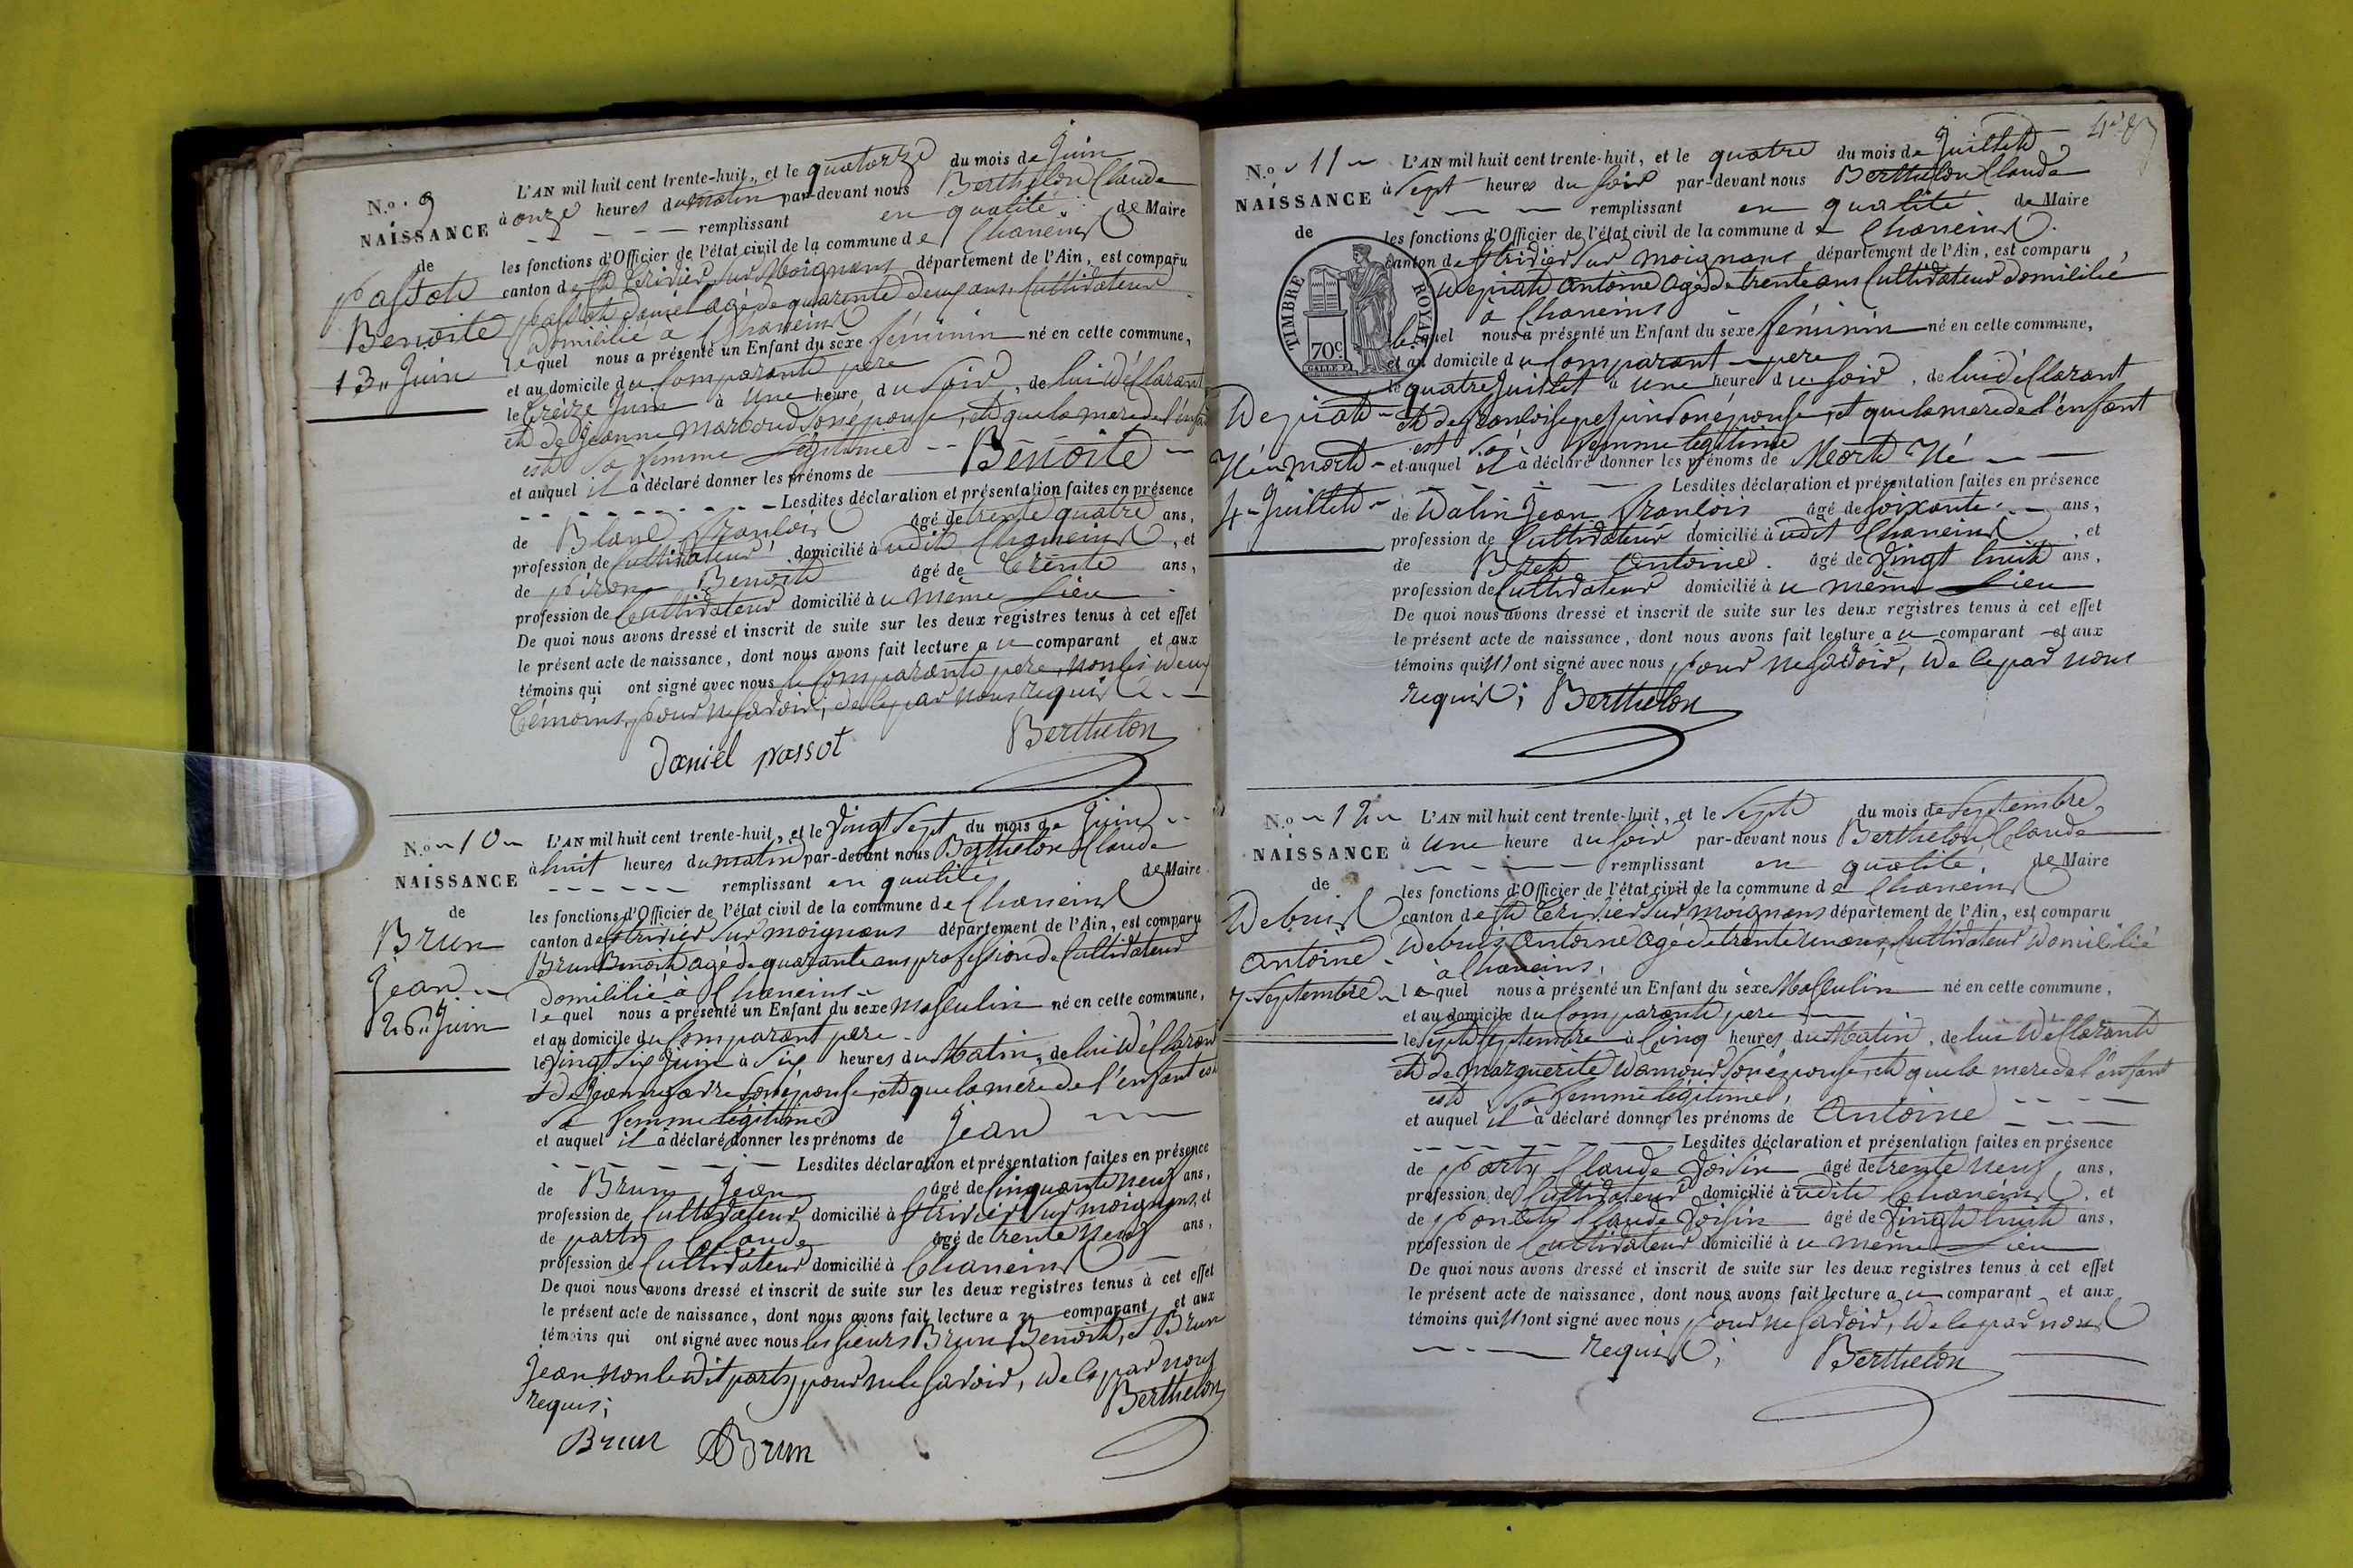 N.o 9
NAISSANCE
de
Passot
Benoite
13 Juin
L'AN mil huit cent trente-huit, et le quatorze du mois de Juin
à onze heures du matin par-devant nous Berthelon Claude
remplissant en qualité de Maire
les fonctions d'Officier de l'état civil de la commune de Chaneins
canton de St Trivier sur Moignans département de l'Ain, est comparu
passot daniel agé de quarante deux ans Cultivateur
Domicilié à Chaneins
lequel nous a présenté un Enfant du sexe féminin né en cette commune,
et au domicile du Comparant pere
le treize Juin à une heure du soir, de lui Déclarant
et de Jeanne son épouse, et que la mere de l'enfant
est sa femme légitime
et auquel il a déclaré donner les prénoms de Benoite
Lesdites déclaration et présentation faites en présence
de Blanc françois âgé de trente quatre ans,
profession de Cultivateur domicilié à udit Chaneins, et
de piron Benoit âgé de trente ans,
profession de Cultivateur domicilié à u même Lieu
De quoi nous avons dressé et inscrit de suite sur les deux registres tenus à cet effet
le présent acte de naissance, dont nous avons fait lecture au comparant et aux
témoins qui ont signé avec nous le Comparant pere, non les deux
témoins, pour ne savoir, de ce par nous requis
daniel passot Berthelon
N.o 10
NAISSANCE
de
Brun
Jean
26 Juin
L'AN mil huit cent trente-huit, et le Vingt sept du mois de Juin
à huit heures du matin par-devant nous Berthelon Claude
remplissant en qualité de Maire
les fonctions d'Officier de l'état civil de la commune de Chaneins
canton de St trivier sur moignans département de l'Ain, est comparu
Brun Benoit agé de quarante ans profession de Cultivateur
Domicilié à Chaneins
lequel nous a présenté un Enfant du sexe Masculin né en cette commune,
et au domicile du Comparant pere
le Vingt six Juin à six heures du Matin, de lui Déclarant
et de Jeanne son épouse, et que la mere de l'enfant est
sa femme légitime
et auquel il a déclaré donner les prénoms de Jean
Lesdites déclaration et présentation faites en présence
de Brun Jean âgé de Cinquante neuf ans,
profession de Cultivateur domicilié à St trivier sur moignans, et
de party Claude âgé de trente neuf ans,
profession de Cultivateur domicilié à Chaneins
De quoi nous avons dressé et inscrit de suite sur les deux registres tenus à cet effet
le présent acte de naissance, dont nous avons fait lecture au comparant, et aux
témoins qui ont signé avec nous les sieurs Brun Benoit, et Brun
Jean non le dit party, pour ne le savoir, de ce par nous
requis; Berthelon
Brun Brun
N.o 11
NAISSANCE
de
TIMBRE ROYAL
70c
Depirat
Né mort
4 Juillet
L'AN mil huit cent trente-huit, et le quatre du mois de Juillet
à sept heures du soir par-devant nous Berthelon Claude
remplissant en qualité de Maire
les fonctions d'Officier de l'état civil de la commune de Chaneins
canton de St trivier sur moignans département de l'Ain, est comparu
Depirat antoine agé de trente ans Cultivateur domicilié
à Chaneins
lequel nous a présenté un Enfant du sexe féminin né en cette commune,
et au domicile du Comparant pere
le quatre Juillet à une heure du soir, de lui déclarant
et de françoise son épouse, et que la mere de l'enfant
est sa femme légitime
et auquel il a déclaré donner les prénoms de Mort Né
Lesdites déclaration et présentation faites en présence
de Dalin Jean françois âgé de soixante ans,
profession de Cultivateur domicilié à udit Chaneins, et
de Bret antoine âgé de Vingt huit ans,
profession de Cultivateur domicilié à u même Lieu
De quoi nous avons dressé et inscrit de suite sur les deux registres tenus à cet effet
le présent acte de naissance, dont nous avons fait lecture au comparant et aux
témoins qui ont signé avec nous pour ne savoir, de ce par nous
requis; Berthelon
N.o 12
NAISSANCE
de
Debuis
antoine
7 Septembre
L'AN mil huit cent trente-huit, et le Sept du mois de Septembre
à Une heure du soir par-devant nous Berthelon Claude
remplissant en qualité de Maire
les fonctions d'Officier de l'état civil de la commune de Chaneins
canton de St trivier sur moignans département de l'Ain, est comparu
Debuis antoine agé de trente un ans, Cultivateur Domicilié
à Chaneins,
lequel nous a présenté un Enfant du sexe Masculin né en cette commune,
et au domicile du Comparant pere
le Sept Septembre à Cinq heures du Matin, de lui Déclarant
et de marguerite Damour son épouse, et que la mere de l'enfant
est sa femme légitime,
et auquel il a déclaré donner les prénoms de Antoine
Lesdites déclaration et présentation faites en présence
de party Claude Voisin âgé de trente neuf ans,
profession de Cultivateur domicilié à udit Chaneins, et
de poncet Claude Voisin âgé de Vingt huit ans,
profession de Cultivateur domicilié à u même Lieu
De quoi nous avons dressé et inscrit de suite sur les deux registres tenus à cet effet
le présent acte de naissance, dont nous avons fait lecture au comparant et aux
témoins qui ont signé avec nous pour ne savoir, de ce par nous
requis; Berthelon